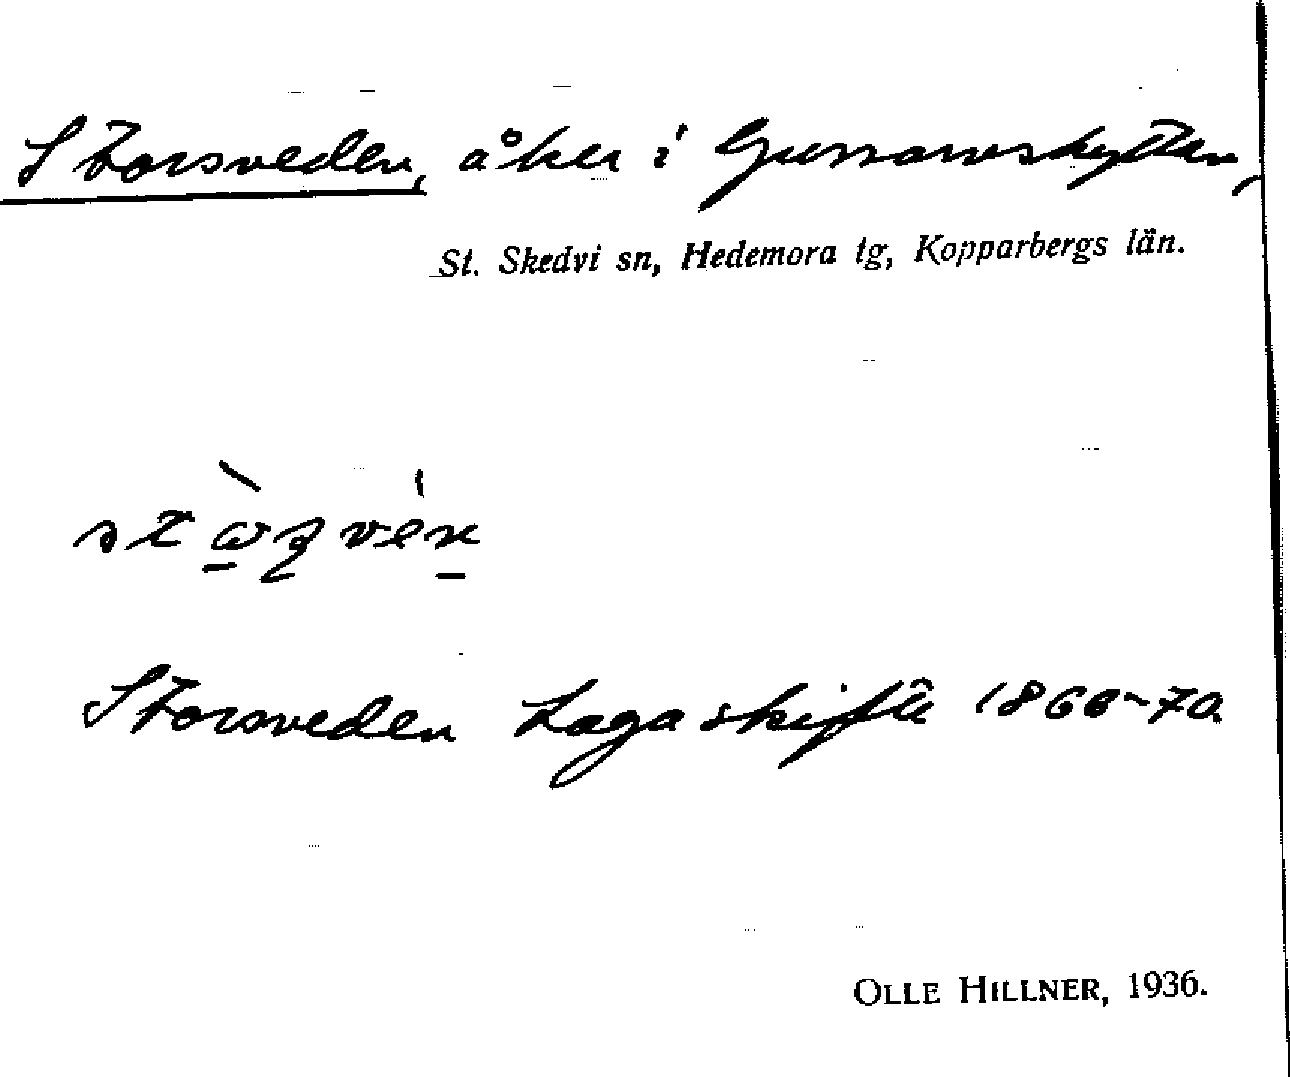 Storsveden, åker i Gunnarsskytten,
St. Skedvi sn, Hedemora tg, Kopparbergs län.
Storsveden Laga skifte 1866-70
OLLE HILLNER, 1936.